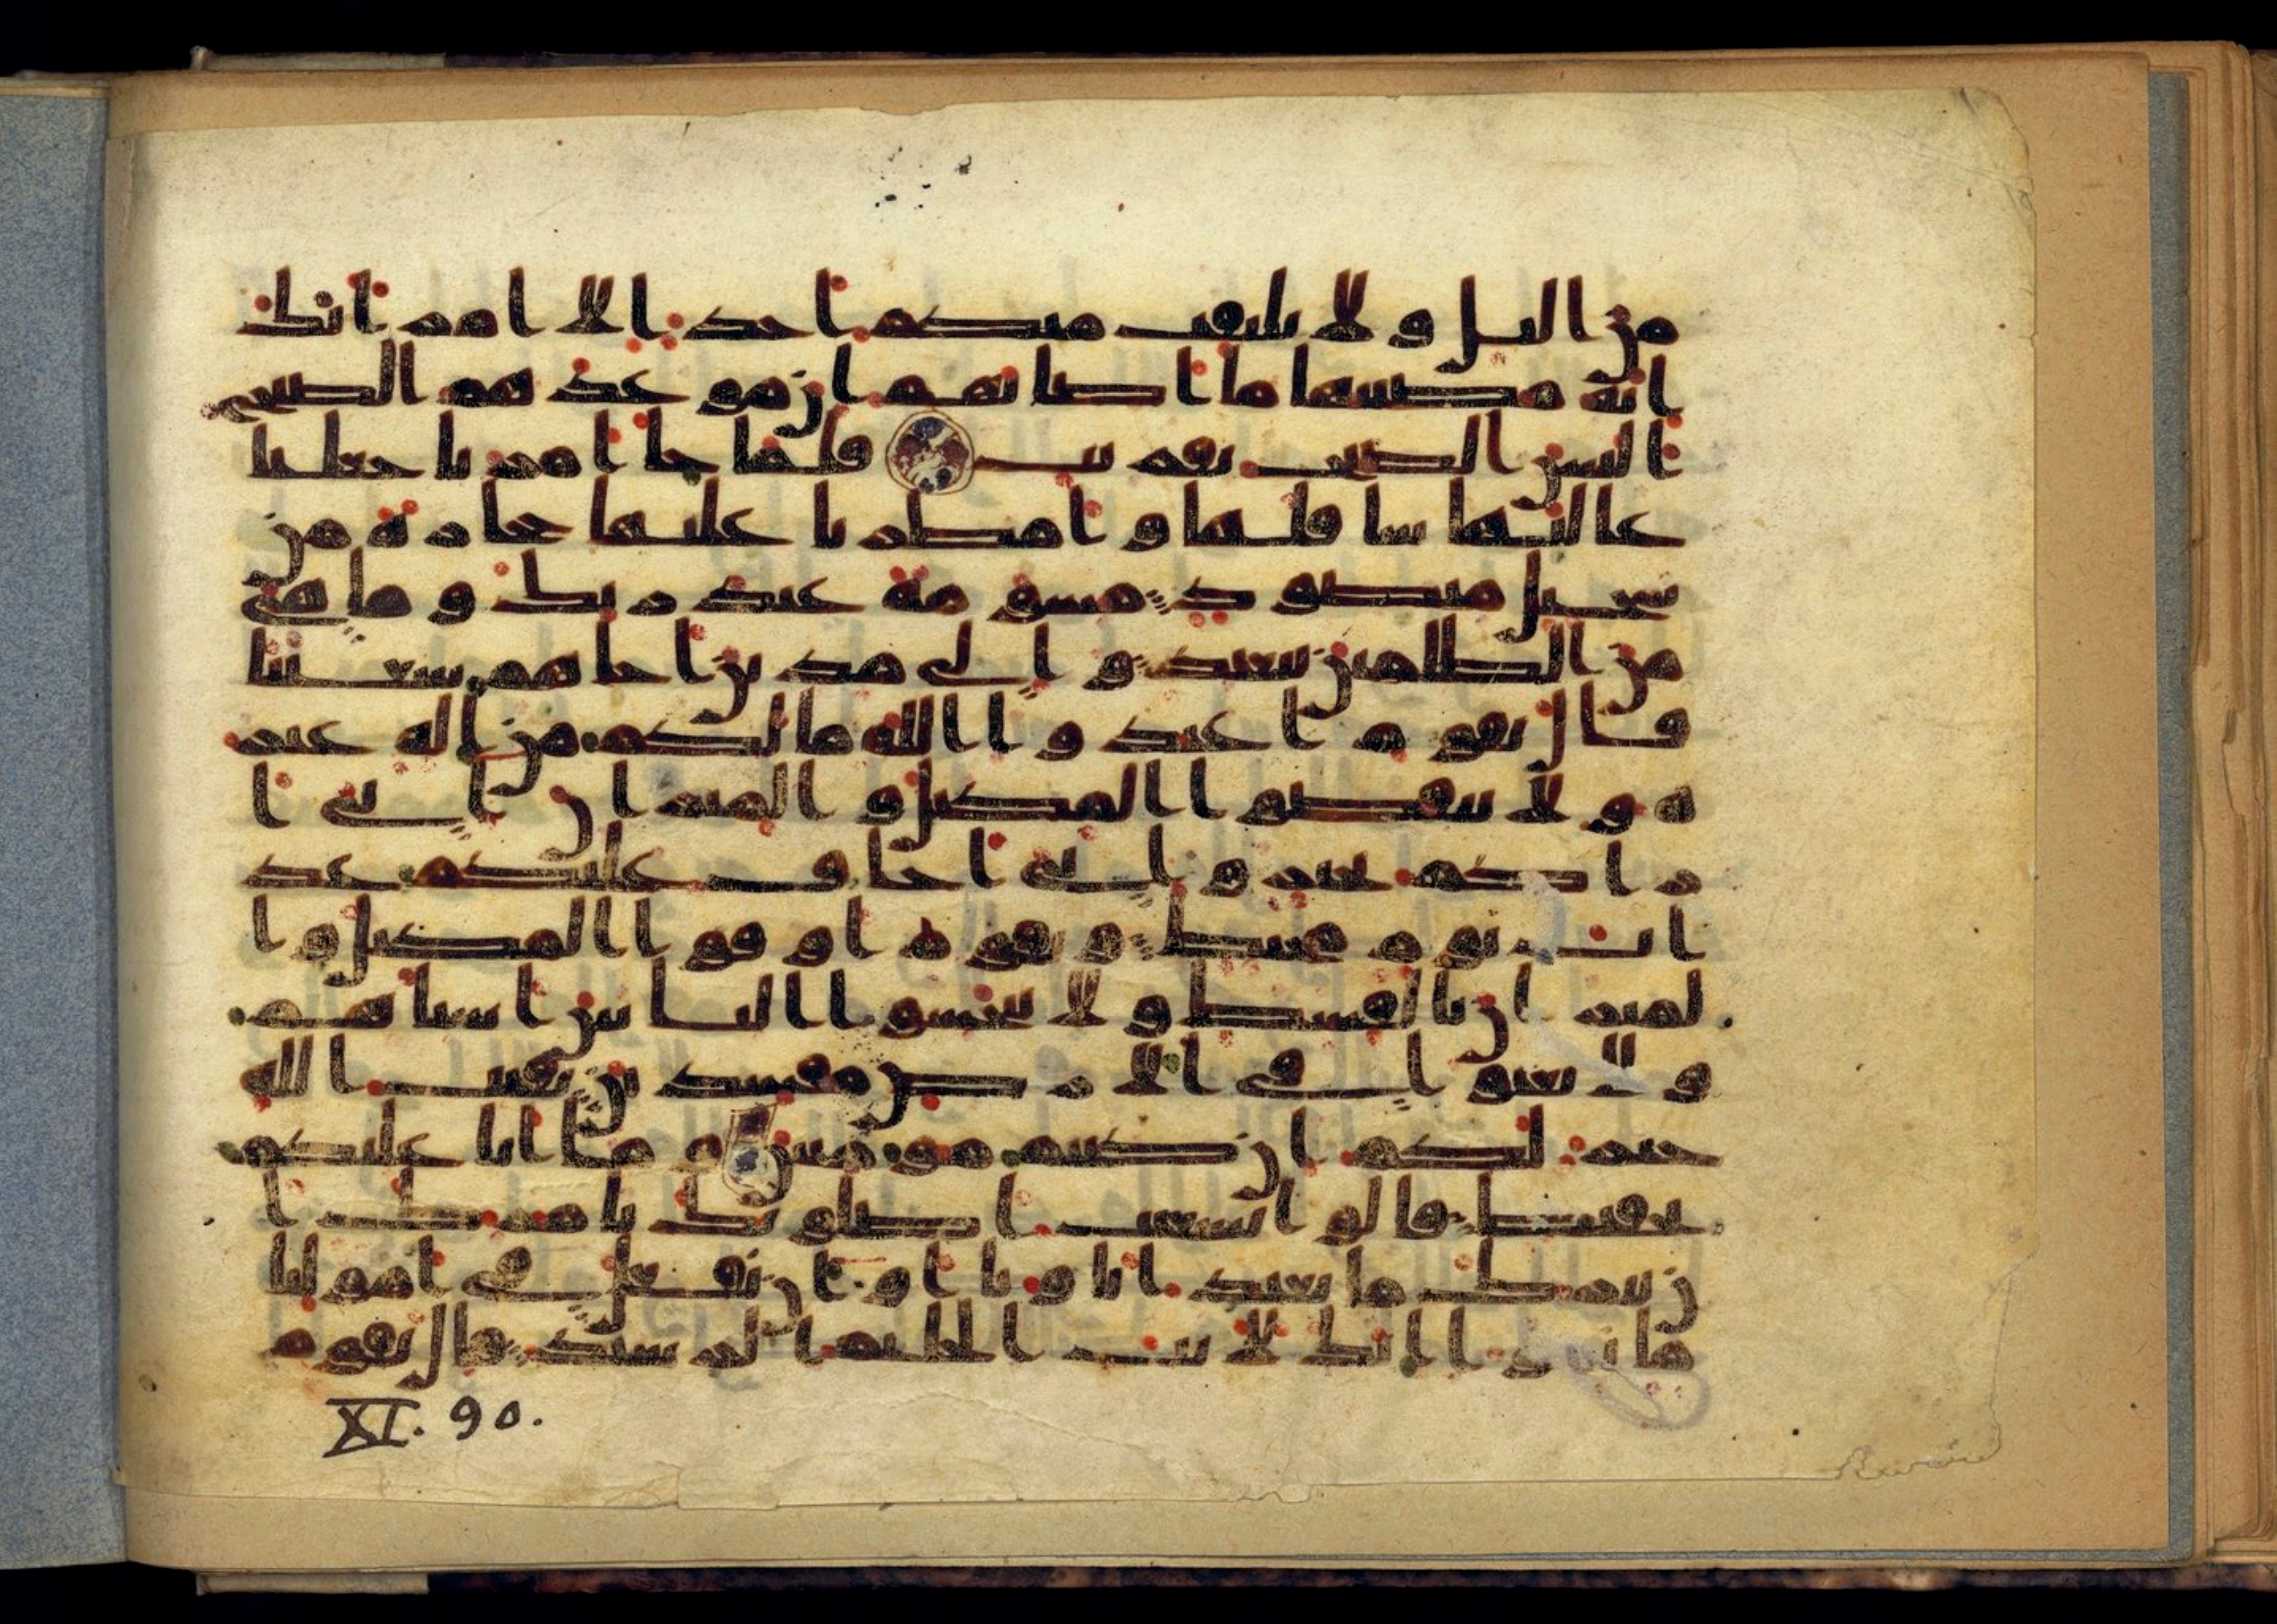 من اليل ولا يلتفت منكم احد الا امرتك
انه مصيبها ما اصابهم ان موعدهم الصبح
اليس الصبح بقريب فلما جا امرنا جعلنا
عاليها سافلها وامطرنا عليها حجارة من
سجيل منضود مسومة عند ربك وما هي
من الظلمين ببعيد والى مدين اخاهم شعيبا
قال يقوم اعبدوا الله ما لكم من اله غير
ه ولا تنقصوا المكيل والميزان اني ا
ريكم بخير واني اخاف عليكم عذ
اب يوم محيط ويقوم اوفوا المكيل وا
لميزان بالقسط ولا تبخسوا الناس اشياهم
ولا تعثوا في الارض مفسدين بقيت الله
خير لكم ان كنتم مومنين وما انا عليكم
بحفيظ قالوا يشعيب اصلوتك تامرك ا
ن نترك ما يعبد اباونا او ان نفعل في امولنا
ما نشوا انك لانت الحليم الرشيد قال يقوم
XI. 90.